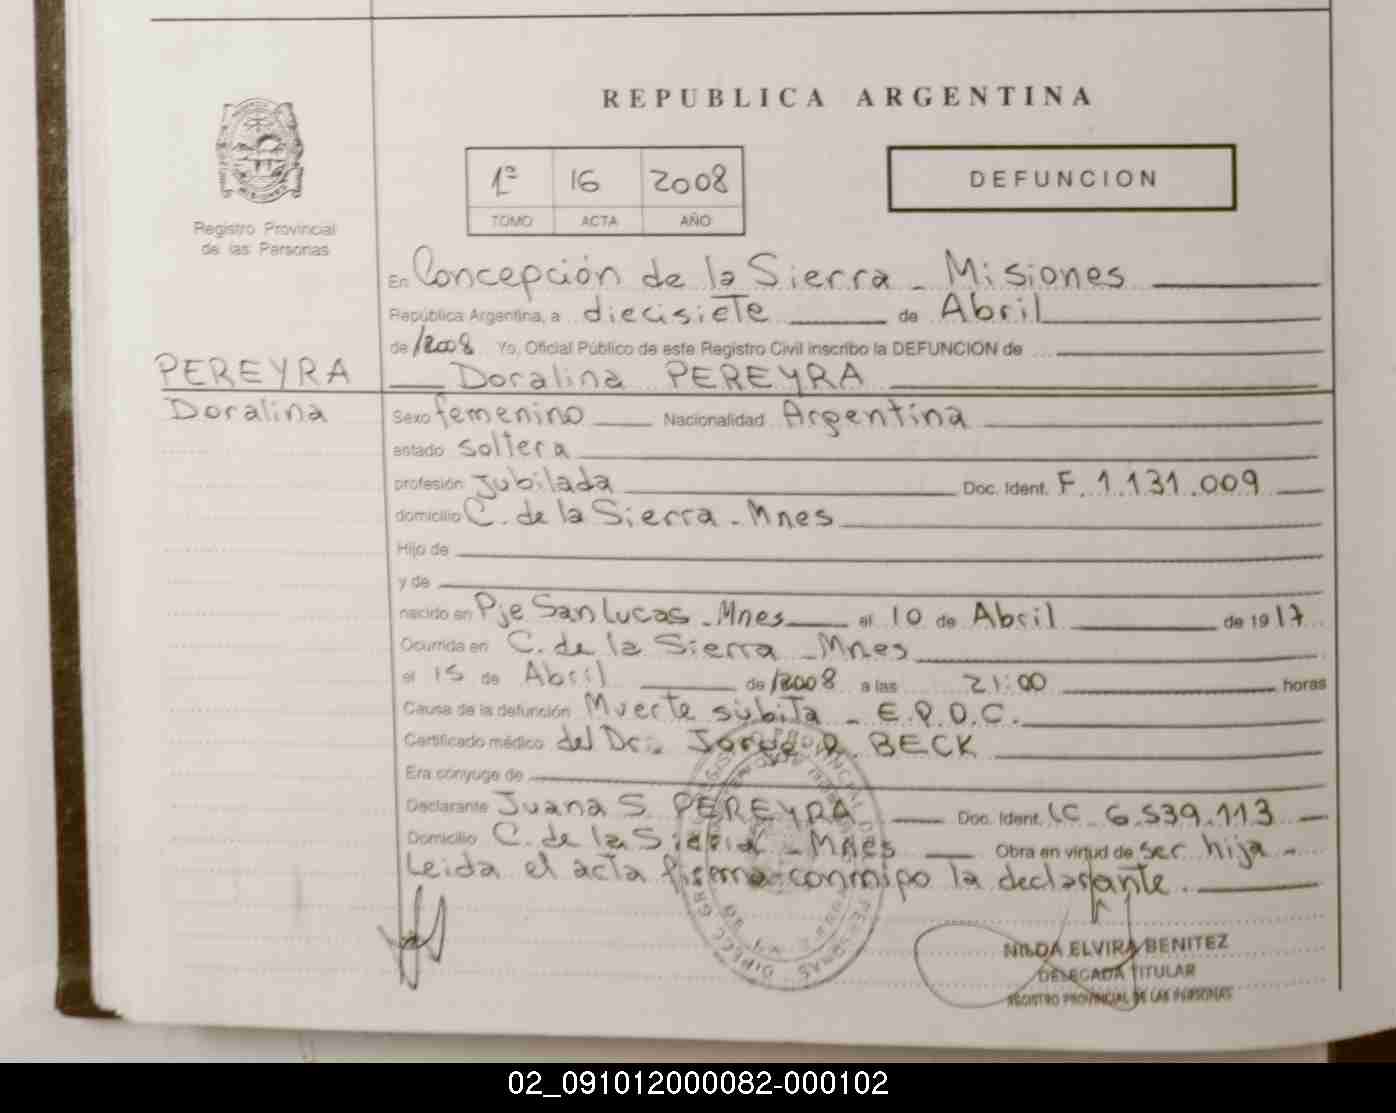 REPUBLICA ARGENTINA
1º 16 2008
TOMO ACTA AÑO
DEFUNCION
Registro Provincial
de las Personas
En Concepción de la Sierra - Misiones
República Argentina, a diecisiete de Abril
de /2008 Yo, Oficial Público de este Registro Civil inscribo la DEFUNCION de
PEREYRA
Doralina
Doralina PEREYRA
Sexo femenino Nacionalidad Argentina
estado soltera
profesión Jubilada Doc. Ident. F. 1.131.009
domicilio C. de la Sierra - Mnes
Hijo de
y de
nacido en Pje San Lucas - Mnes el 10 de Abril de 1917
Ocurrida en C. de la Sierra - Mnes
el 15 de Abril de /2008 a las 21:00 horas
Causa de la defunción Muerte súbita - E.P.O.C.
Certificado médico del Dr. Jorge R. BECK
Era cónyuge de
Declarante Juana S. PEREYRA Doc. Ident. LC 6.539.113
Domicilio C. de la Sierra - Mnes Obra en virtud de ser hija -
Leida el acta firma conmigo la declarante.
NILDA ELVIRA BENITEZ
DELEGADA TITULAR
REGISTRO PROVINCIAL DE LAS PERSONAS
02_091012000082-000102